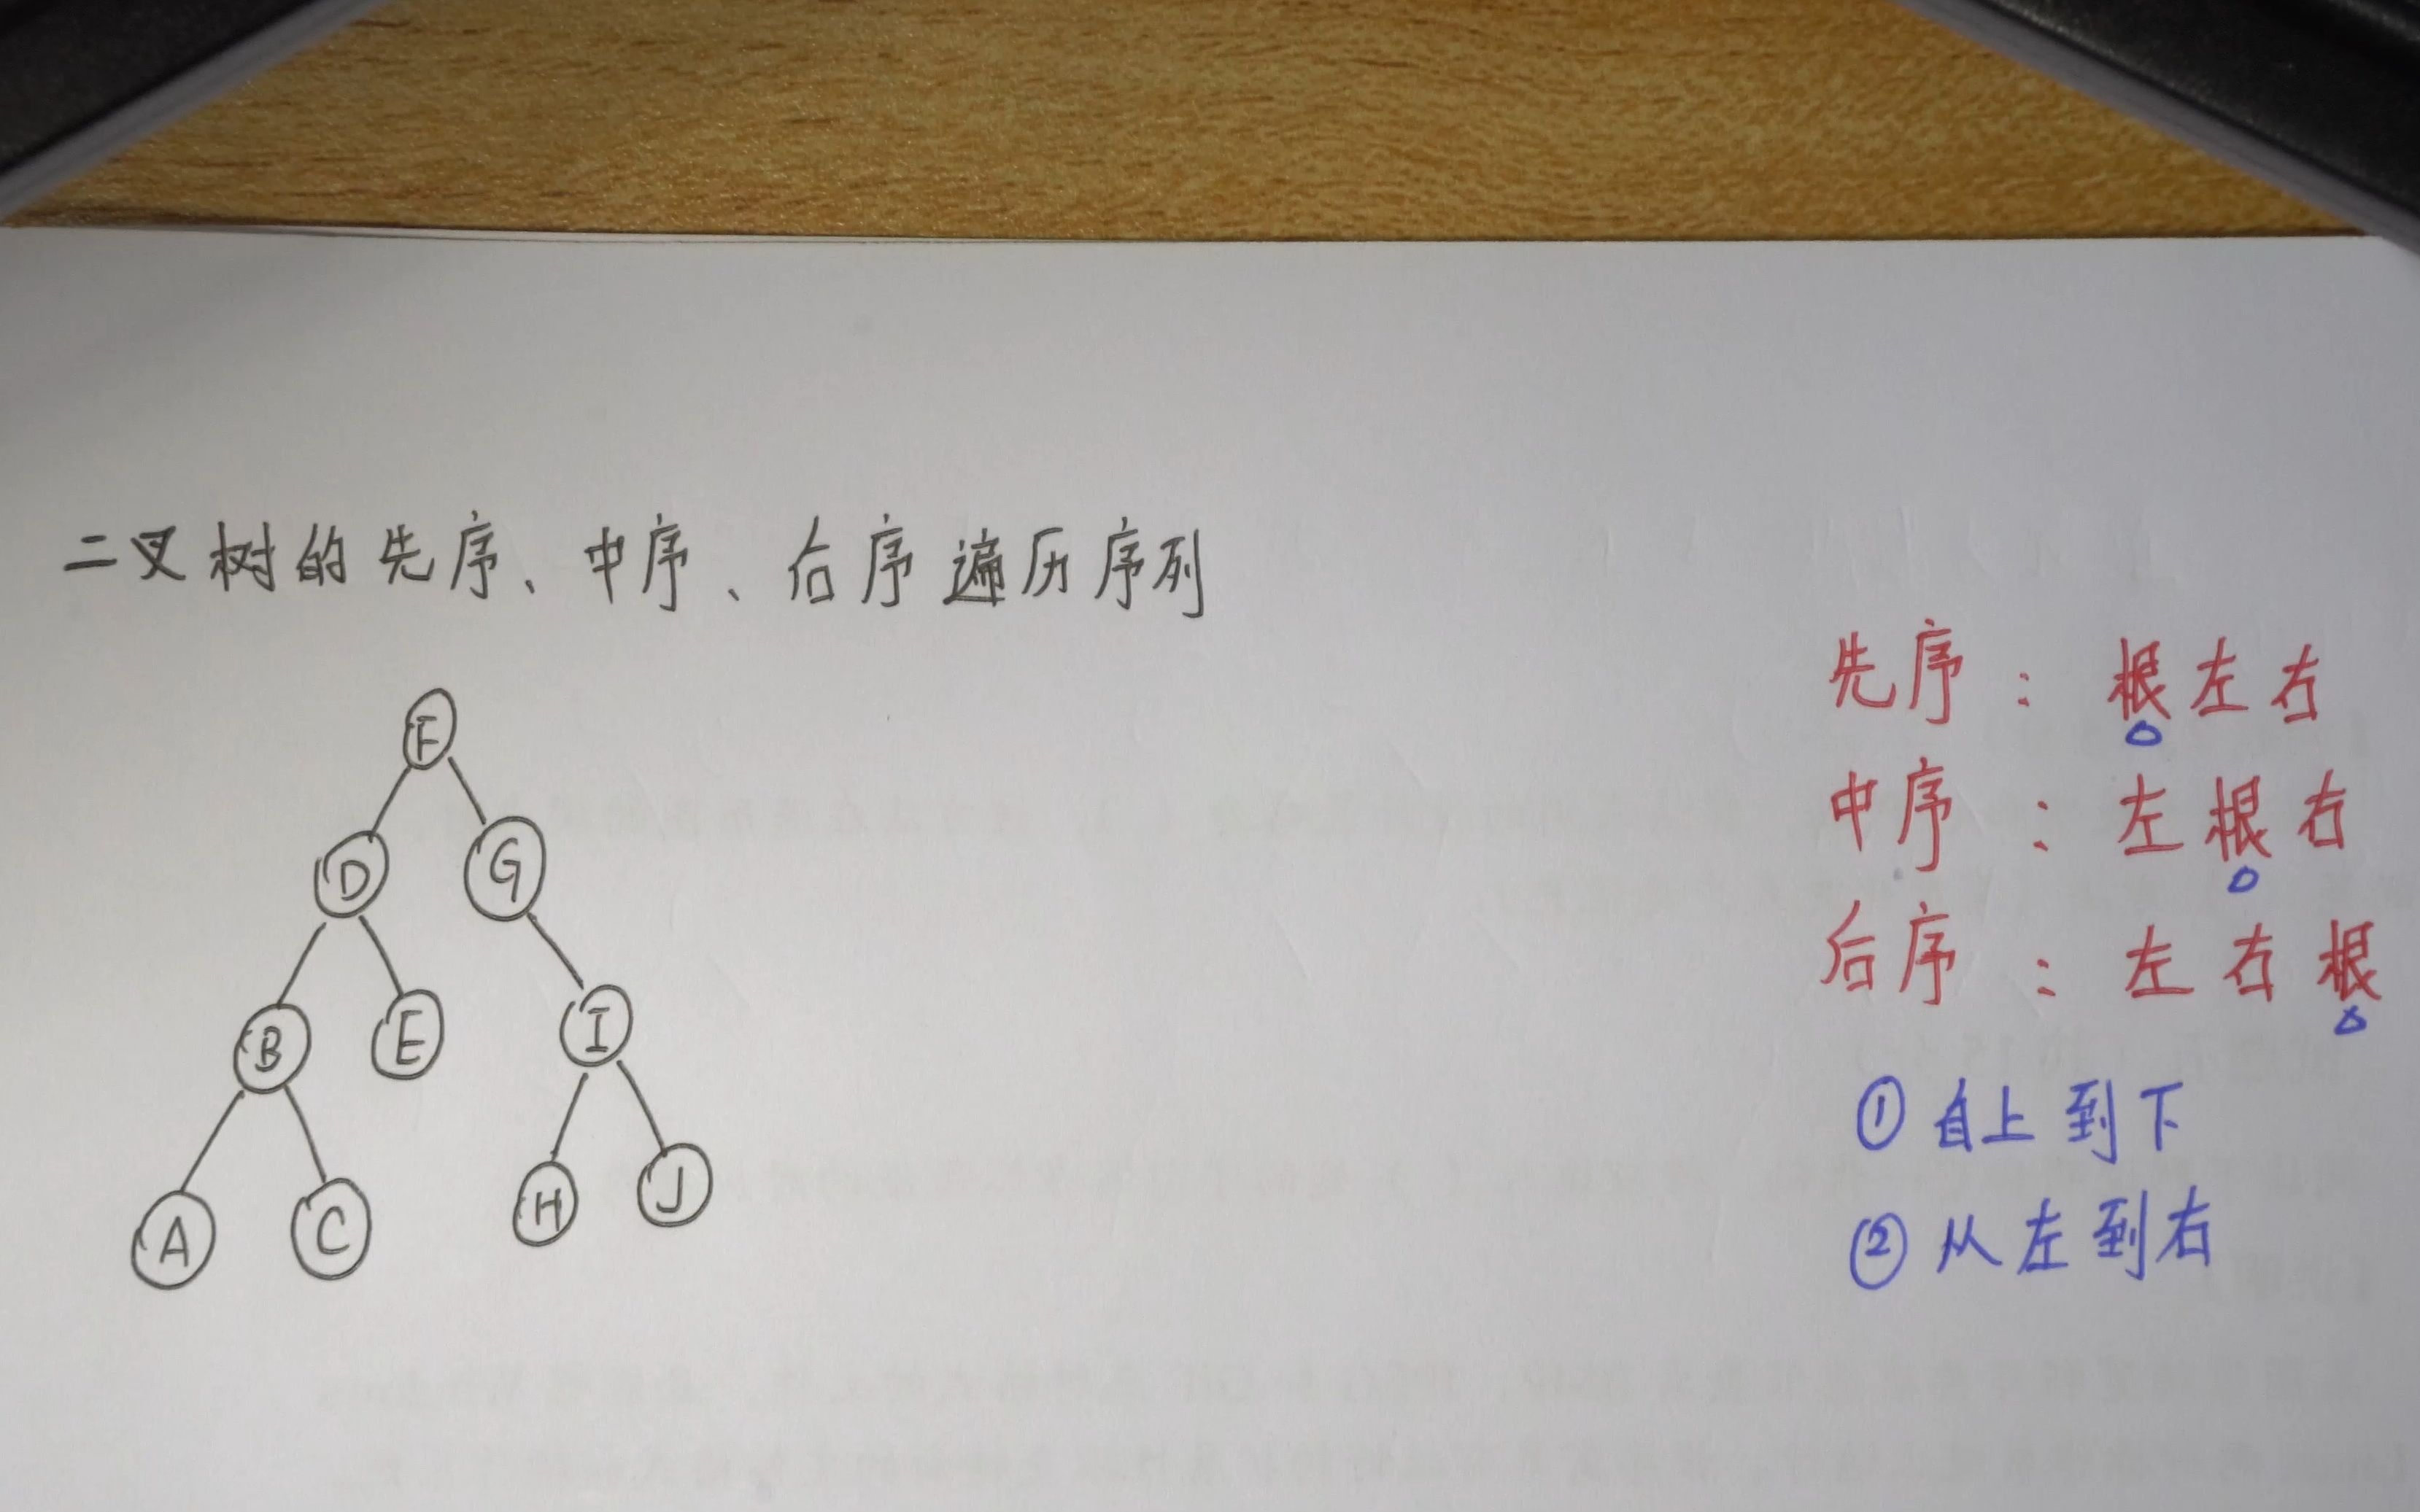 二叉树的先序、中序、后序遍历序列
F
D G
B E I
A C H J
先序：根左右
中序：左根右
后序：左右根
①自上到下
②从左到右